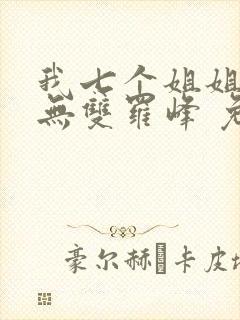 我七个姐姐
無雙羅峰
豪尔赫·卡皮